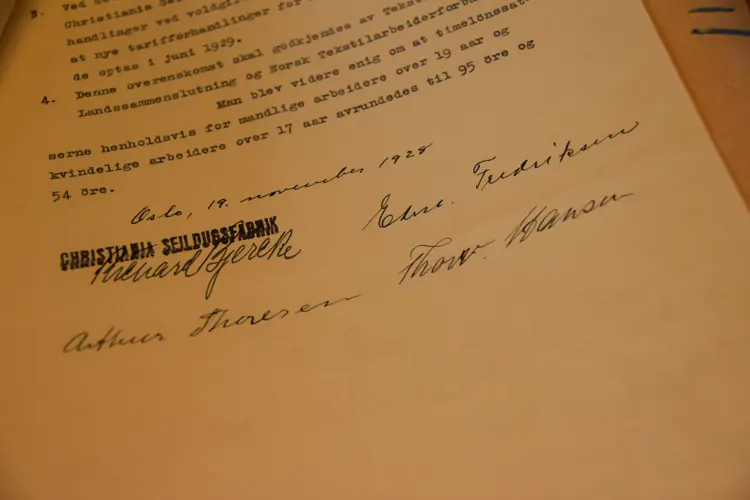 3. Ved
Christiania Sei
handlinger ved voldgif
at nye tarifforhandlinger for
de optas i juni 1929.
4. Denne overenskomst skal godkjendes av Tekst
Landssammenslutning og Norsk Tekstilarbeiderforbu
Man blev videre enig om at timelönssat-
serne henholdsvis for mandlige arbeidere over 19 aar og
kvindelige arbeidere over 17 aar avrundedes til 95 öre og
54 öre.
Oslo, 19. november 1928
CHRISTIANIA SEILDUGSFABRIK
Richard Bjercke
Fredriksen
Arthur Thoresen
Hansen